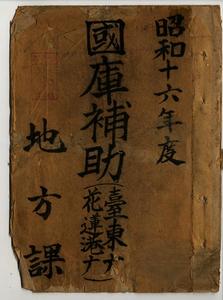 昭和十六年度
國庫補助
(臺東ナ
花蓮港ナ)
地方課